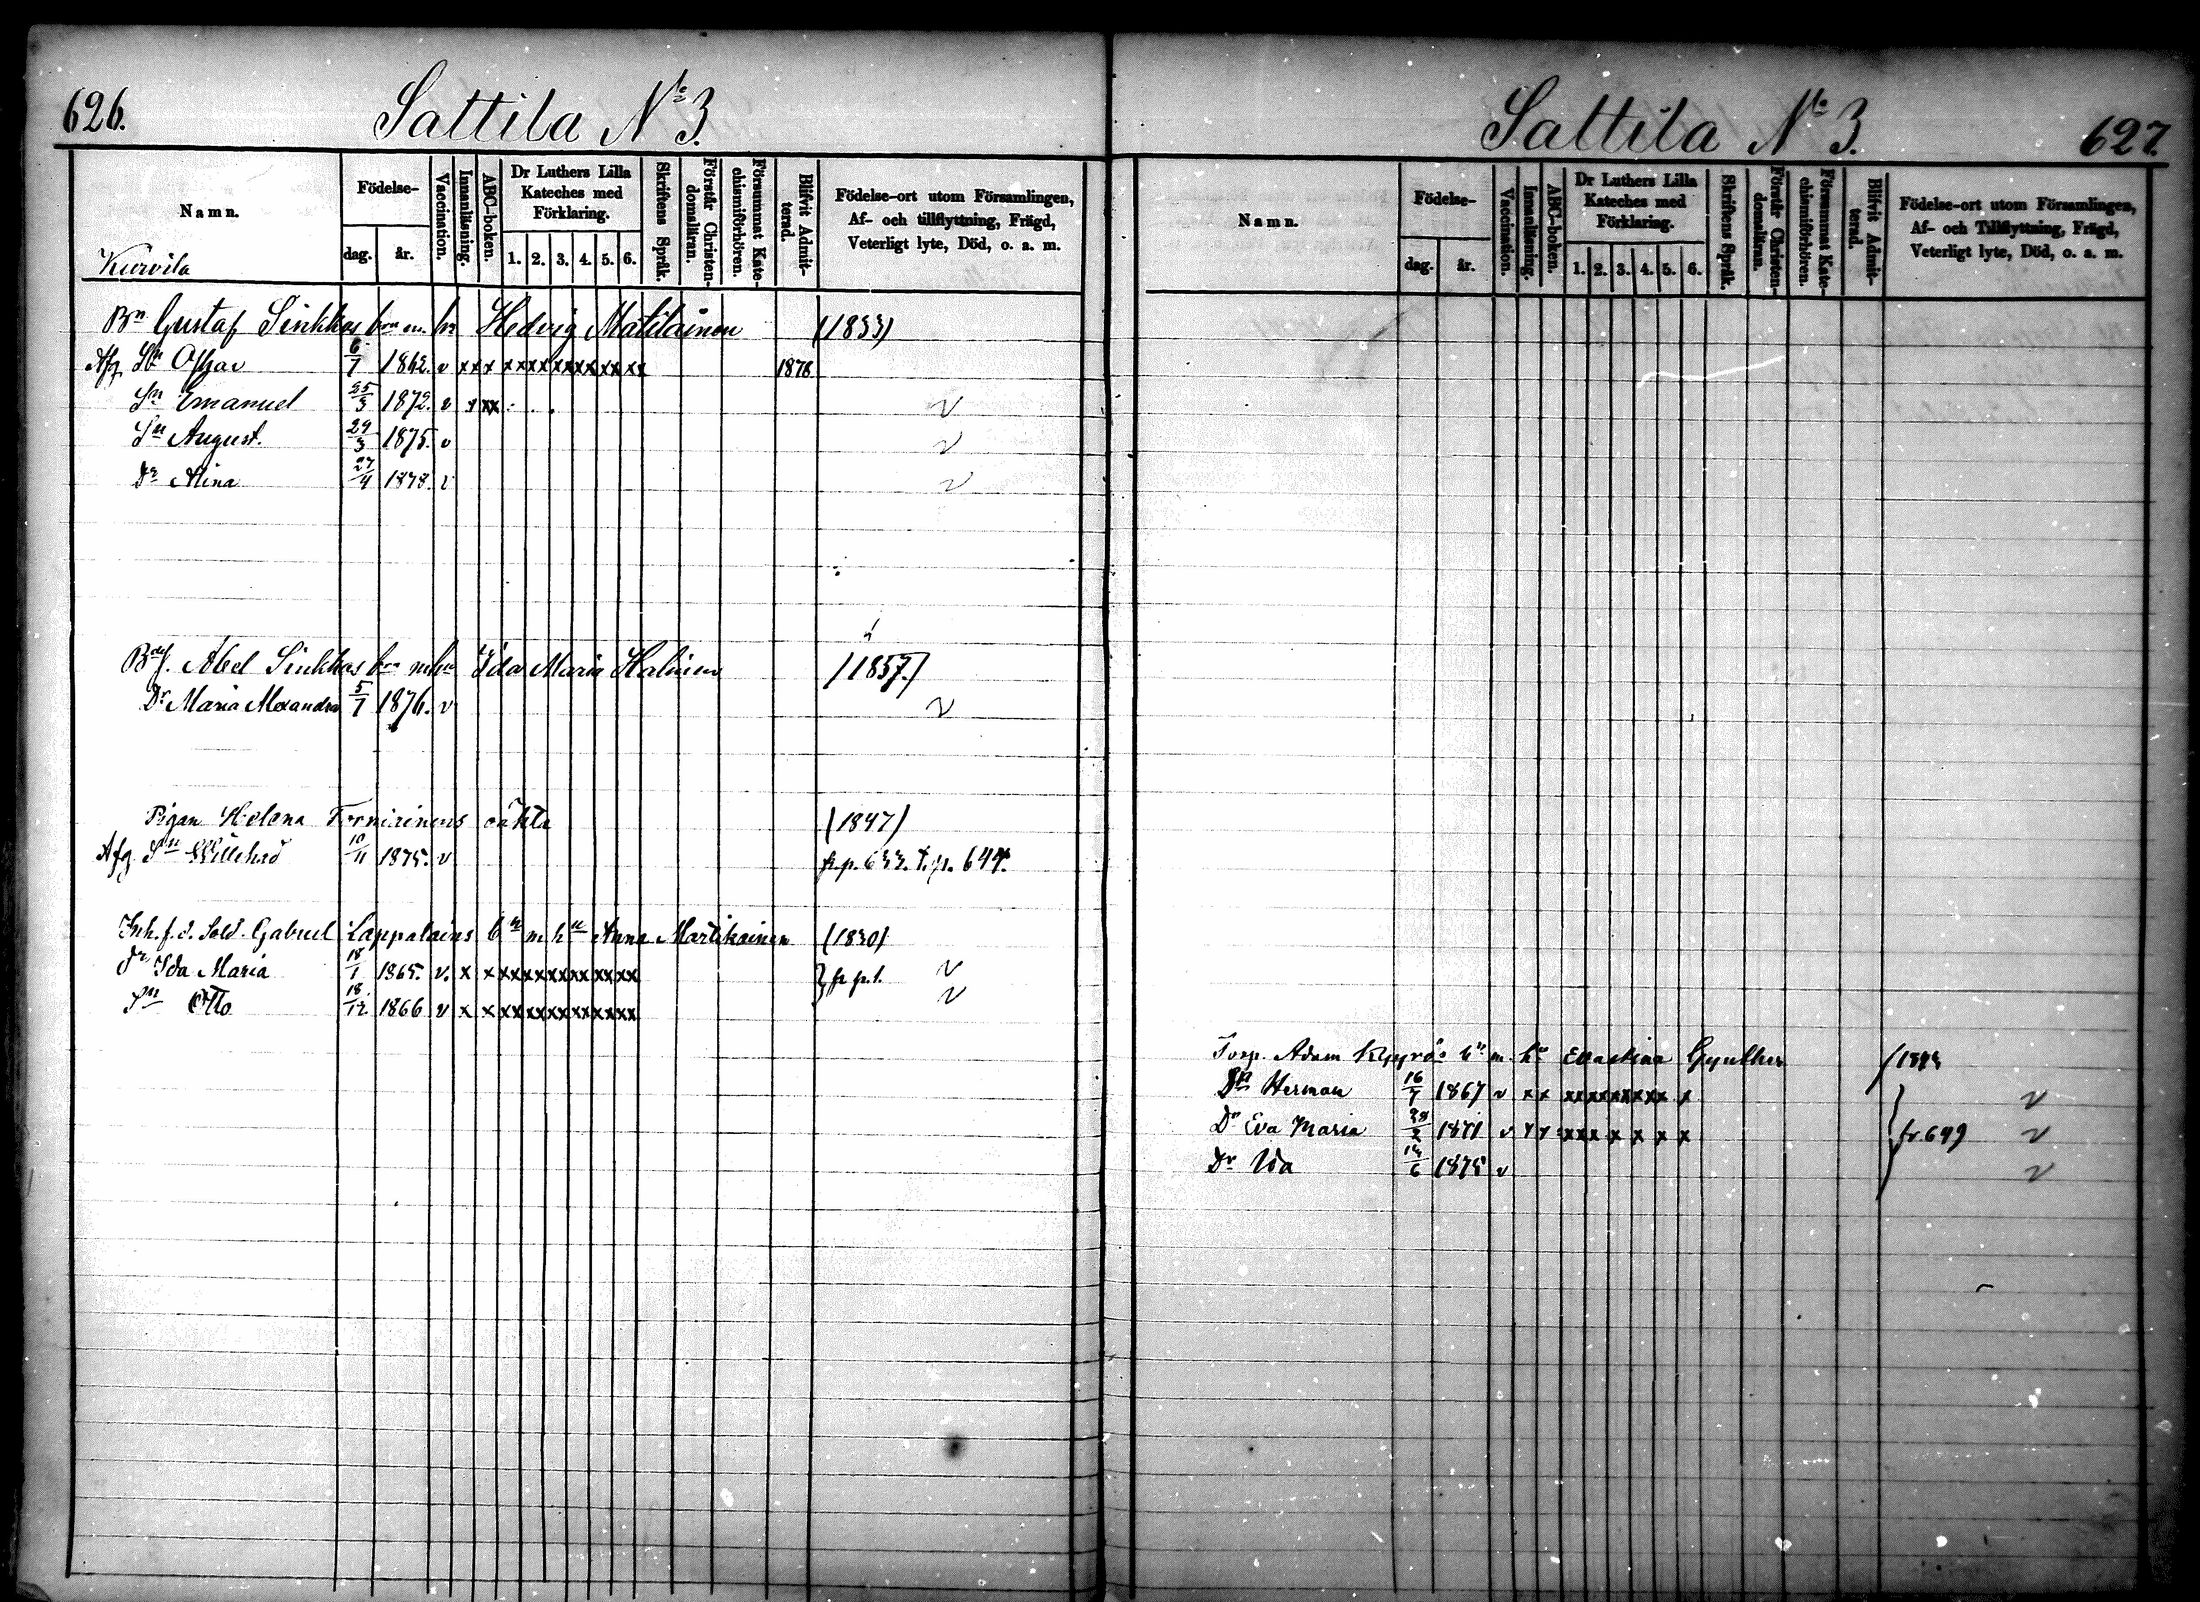 626.
Sattila No 3.
Namn.
Födelse-
dag.
år.
Vaccination.
Innanläsning.
ABC-boken.
Dr Luthers Lilla Kateches med Förklaring.
1. 2. 3. 4. 5. 6.
Skriftens Språk.
Förstår Christendomsläran.
Försummat Katechismiförhören.
Blifvit Admitterad.
Födelse-ort utom Församlingen,
Af- och tillflyttning, Frägd,
Veterligt lyte, Död, o. a. m.
Kurvila
Bn Gustaf Sinkkos bn m. hn Hedvig Matilainen (1833)
Afg. Sn Oskar 6/7 1862. v x x x xx xx xx xx xx xx 1878
Sn Emanuel 25/3 1872. v x xx v
Sn August. 29/3 1875. v v
Dr Mina 27/4 1878. v v
Abel Sinkkos bn m hn Ida Maria Halinen (1857.)
Dr Maria Alexandra 5/7 1876. v v
Pigan Helena oäkta (1847)
Afg. Sn Willehad 10/11 1875. v fr. p. 633. t. p. 644.
Inh. f. d. Sold. Gabriel Lappalains bn m hn Anna Martikainen (1830)
Dr Ida Maria 18/1 1865. v. x x xx xx xx xx xx xx } fr p. 1. v
Sn Otto 18/12 1866 v x x xx xx xx xx xx xx v
Sattila No 3.
627.
Namn.
Födelse-
dag.
år.
Vaccination.
Innanläsning.
ABC-boken.
Dr Luthers Lilla Kateches med Förklaring.
1. 2. 3. 4. 5. 6.
Skriftens Språk.
Förstår Christendomsläran.
Försummat Katechismiförhören.
Blifvit Admitterad.
Födelse-ort utom Församlingen,
Af- och Tillflyttning, Frägd,
Veterligt lyte, Död, o. a. m.
Torp. Adam bn m. hn Evastina Gynther
Herman 16/7 1867 v x x xx xx xx xx x v
Dr Eva Maria 1871 v x x xx x x x x x fr. 649 v
Dr Ida 1875 v v